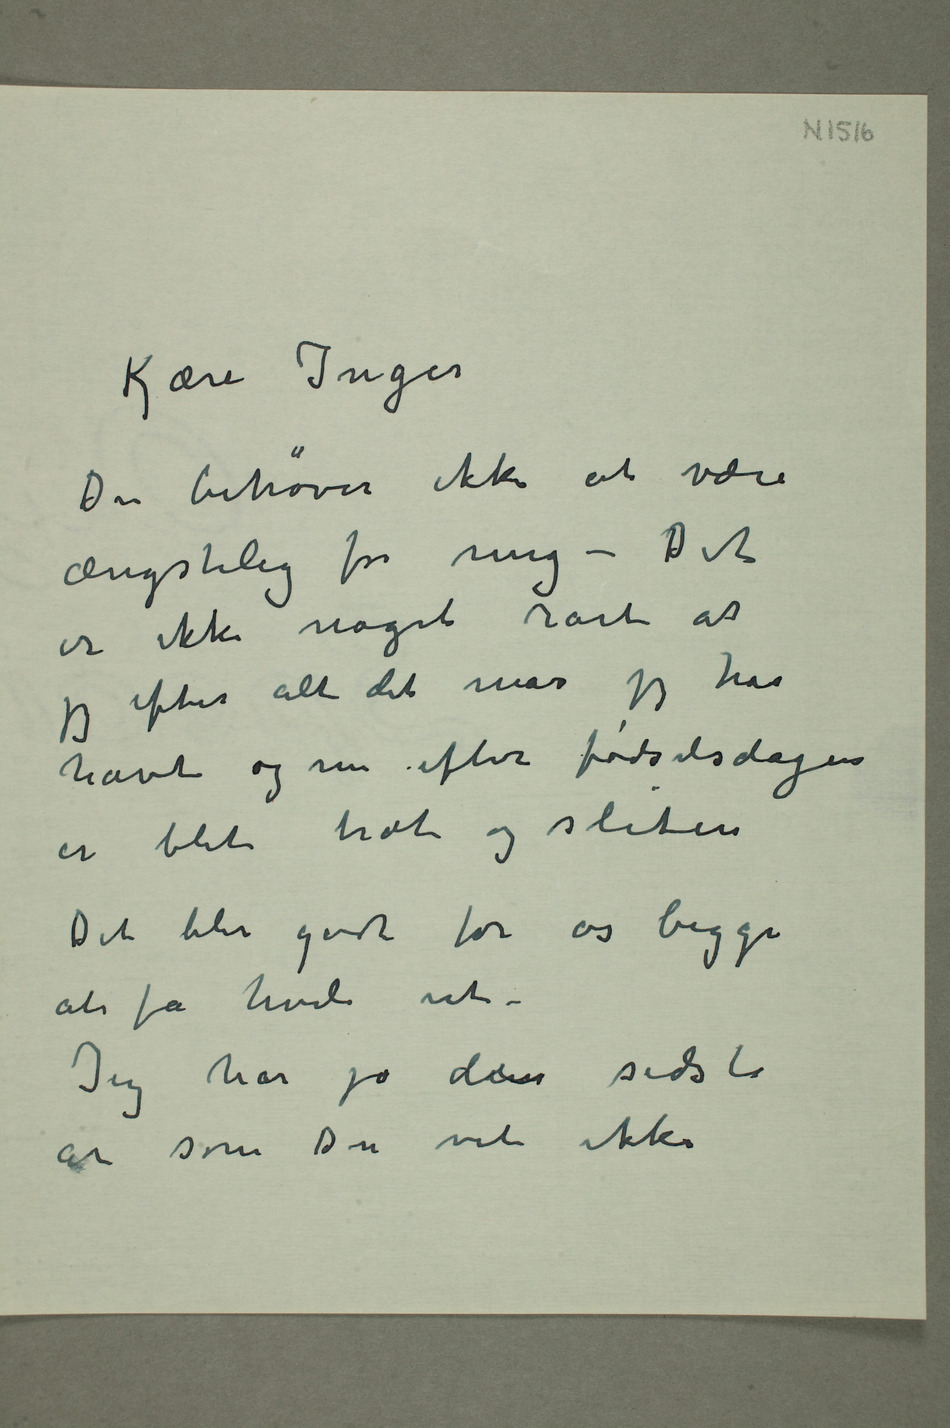 N 1516
Kjære Inger
Du behøver ikke at være
ængstelig for mig – Det
er ikke noget rart at
jeg efter alt det mas jeg har
havt og nu efter fødselsdagen
er blet træt og sliten
Det blir godt for os begge
at få hvile ut –
Jeg har jo den sidste
år som Du vet ikke